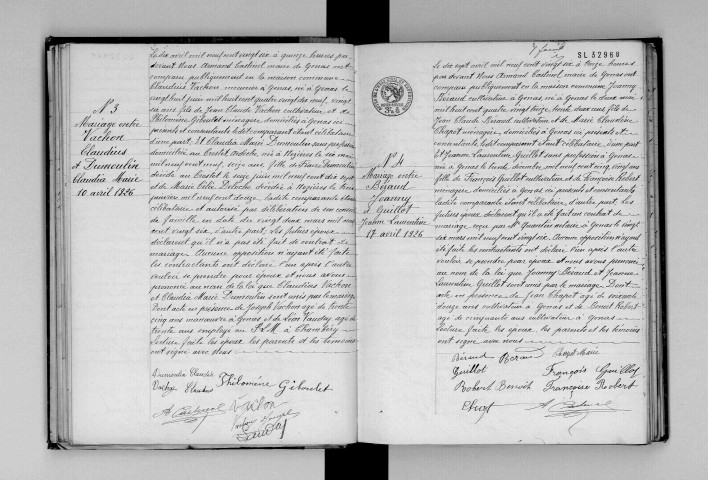 N° 3
Mariage entre
Vachon
Claudius
et Dumoulin
Claudia Marie
10 avril 1926
Le dix avril mil neuf cent vingt six à quinze heures par
devant Nous Armand Castinel maire de Genas ont
comparu publiquement en la maison commune
Claudius Vachon menuisier à Genas, né à Genas le
vingt huit juin mil huit cent quatre vingt dix neuf, vingt
six ans fils de Jean Claude Vachon cultivateur et de
Philomène Giboulet ménagère, domiciliés à Genas ci
présents et consentants le dit comparant étant célibataire
d'une part. Et Claudia Marie Dumoulin sans profession
domiciliée au née à le six mai
mil neuf cent neuf, seize ans fille de Dumoulin
décédé au le juin mil neuf cent dix sept
et de Marie décédée à le
janvier mil neuf cent douze, ladite comparante étant
célibataire et autorisée par délibération de son conseil
de famille en date du vingt deux mars mil neuf
cent vingt six, d'autre part. Les futurs époux
déclarent qu'il n'a pas été fait de contrat de
mariage. Aucune opposition n'ayant été faite
les contractants ont déclaré l'un après l'autre
vouloir se prendre pour époux et nous avons
prononcé au nom de la loi que Claudius Vachon
et Claudia Marie Dumoulin sont unis par le mariage
Dont acte en présence de Joseph Vachon âgé de trente
cinq ans manœuvre à Genas et de Léon Vaudray âgé de
trente ans employé au P.L.M. à Chambéry
Lecture faite les époux les parents et les témoins
ont signé avec Nous
Dumoulin Claudia
Vachon Claudius Philomène Giboulet
A Castinel Vachon
SL 32968
N° 4
Mariage entre
Béraud
Joanny
et Guillot
Jeanne Laurentine
17 avril 1926
Le dix sept avril mil neuf cent vingt six à onze heures
par devant Nous Armand Castinel maire de Genas ont
comparu publiquement en la maison commune Joanny
Béraud cultivateur à Genas, né à Genas le deux mai
mil huit cent quatre vingt treize, trente deux ans, fils de
Jean Claude Béraud cultivateur et de Marie Claudine
Chapot ménagère domiciliés à Genas, ci présente et
consentante, ledit comparant étant célibataire d'une part
Et Jeanne Laurentine Guillot sans profession à Genas
née à Genas le décembre mil neuf cent cinq, vingt ans
fille de François Guillot cultivateur et de Françoise Robert
ménagère domiciliés à Genas ci présents et consentants
ladite comparante étant célibataire, d'autre part. Les
futurs époux déclarent qu'il a été fait un contrat de
mariage reçu par Me Quantin notaire à Genas le vingt
six mars mil neuf cent vingt six. Aucune opposition n'ayant
été faite les contractants ont déclaré l'un après l'autre
vouloir se prendre pour époux. Et nous avons prononcé
au nom de la loi que Joanny Béraud et Jeanne
Laurentine Guillot sont unis par le mariage. Dont
acte en présence de Jean Chapot âgé de soixante
douze ans cultivateur à Genas et de Benoît Robert
âgé de cinquante ans cultivateur à Genas
Lecture faite les époux, les parents et les témoins
ont signé avec nous
Béraud Béraud Chapot Marie
Guillot François Guillot
Robert Benoît Françoise Robert
Chapot A Castinel